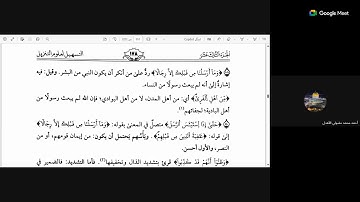 Google Meet
الجزء الثالث عشر
١٧٨
التسهيل لعلوم التنزيل
﴿وَمَا أَرْسَلْنَا مِن قَبْلِكَ إِلَّا رِجَالًا﴾ ردٌّ على من أنكر أن يكون النبي من البشر. وقيل: فيه
إشارةٌ إلى أنه لم يبعث رسولًا من النساء.
﴿مِّنْ أَهْلِ الْقُرَىٰ﴾ أي: من أهل المدن، لا من أهل البوادي؛ فإن الله لم يبعث رسولًا من
أهل البادية؛ لجفائهم
﴿حَتَّىٰ إِذَا اسْتَيْأَسَ الرُّسُلُ﴾ متصلٌ في المعنى بقوله: ﴿وَمَا أَرْسَلْنَا مِن قَبْلِكَ إِلَّا رِجَالًا﴾
إلى قوله: ﴿عَاقِبَةُ الَّذِينَ مِن قَبْلِهِمْ﴾. ويأسُهم يُحتمل أن يكون: من إيمان قومهم، أو من
النصر، والأول أحسن.
﴿وَظَنُّوا أَنَّهُمْ قَدْ كُذِبُوا﴾ قرئ بتشديد الذال وتخفيفها، فأما التشديد: فالضمير في